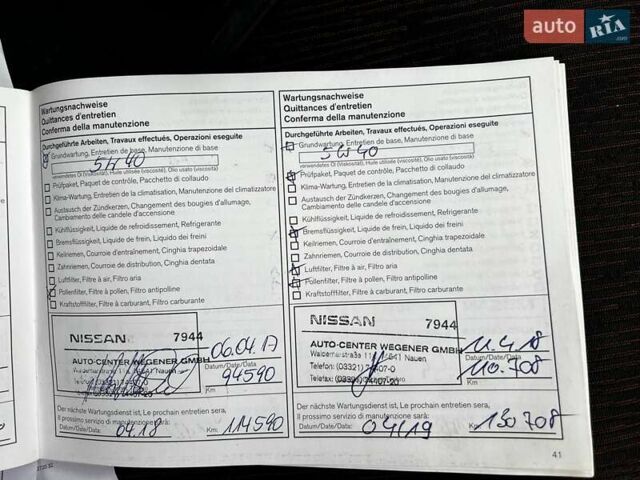 auto RIA
.com
Wartungsnachweise
Quittances d'entretien
Conferma della manutenzione
Durchgeführte Arbeiten, Travaux effectués, Operazioni eseguite
Grundwartung, Entretien de base, Manutenzione di base
5W40
verwendetes Öl (Viskosität), Huile utilisée (viscosité), Olio usato (viscosità)
Prüfpaket, Paquet de contrôle, Pacchetto di collaudo
Klima-Wartung, Entretien de la climatisation, Manutenzione del climatizzatore
Austausch der Zündkerzen, Changement des bougies d'allumage,
Cambiamento delle candele d'accensione
Kühlflüssigkeit, Liquide de refroidissement, Refrigerante
Bremsflüssigkeit, Liquide de frein, Liquido dei freini
Keilriemen, Courroie d'entraînement, Cinghia trapezoidale
Zahnriemen, Courroie de distribution, Cinghia dentata
Luftfilter, Filtre à air, Filtro aria
Pollenfilter, Filtre à pollen, Filtro antipolline
Kraftstofffilter, Filtre à carburant, Filtro carburante
NISSAN 7944
AUTO-CENTER WEGENER GMBH
Nauen
06.04.17
Datum/Date/Data:
94590
Km
Der nächste Wartungsdienst ist, Le prochain entretien sera,
Il prossimo servizio di manutenzione sarà:
Datum/Date/Data: 04.18 Km: 114590
Wartungsnachweise
Quittances d'entretien
Conferma della manutenzione
Durchgeführte Arbeiten, Travaux effectués, Operazioni eseguite
Grundwartung, Entretien de base, Manutenzione di base
5W40
verwendetes Öl (Viskosität), Huile utilisée (viscosité), Olio usato (viscosità)
Prüfpaket, Paquet de contrôle, Pacchetto di collaudo
Klima-Wartung, Entretien de la climatisation, Manutenzione del climatizzatore
Austausch der Zündkerzen, Changement des bougies d'allumage,
Cambiamento delle candele d'accensione
Kühlflüssigkeit, Liquide de refroidissement, Refrigerante
Bremsflüssigkeit, Liquide de frein, Liquido dei freini
Keilriemen, Courroie d'entraînement, Cinghia trapezoidale
Zahnriemen, Courroie de distribution, Cinghia dentata
Luftfilter, Filtre à air, Filtro aria
Pollenfilter, Filtre à pollen, Filtro antipolline
Kraftstofffilter, Filtre à carburant, Filtro carburante
NISSAN 7944
AUTO-CENTER WEGENER GMBH
Nauen
Telefon: (03321)
Telefax: (03321)
11.4.18
Datum/Date/Data:
110.708
Km
Der nächste Wartungsdienst ist, Le prochain entretien sera,
Il prossimo servizio di manutenzione sarà:
Datum/Date/Data: 04/19 Km: 130708
41